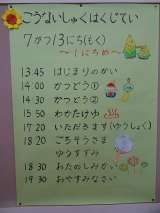 こうないしゅくはくにってい
7がつ13にち(もく)
〜1にちめ〜
13 45 はじまりのかい
14 00 かつどう①
14 30 かつどう②
15 50 わかたけゆ
17 20 いただきます(ゆうしょく)
18 20 ごちそうさま
ゆうすずみ
18 30 おたのしみかい
19 30 おやすみなさい